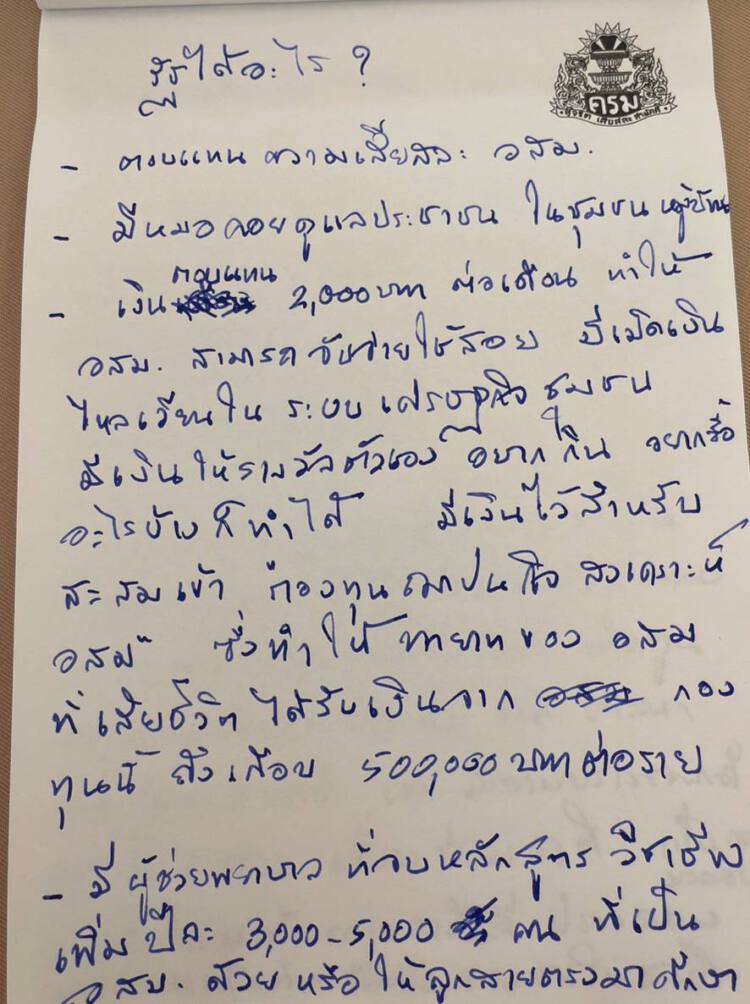 รัฐได้อะไร ?
ครม
สุจริต เสียสละ สามัคคี
- ตอบแทน ความเสียสละ อสม.
- มีหมอคอยดูแลประชาชน ในชุมชน หมู่บ้าน
ตอบแทน
- เงิน 2,000 บาท ต่อเดือน ทำให้
อสม. สามารถ จับจ่ายใช้สอย มีเม็ดเงิน
ไหลเวียนใน ระบบ เศรษฐกิจ ชุมชน
มีเงินให้รางวัลตัวเอง อยากกิน อยากซื้อ
อะไรบ้าง ก็ทำได้ มีเงินไว้สำหรับ
สะสมเข้า "กองทุนฌาปนกิจ สงเคราะห์
อสม" ซึ่งทำให้ ทายาทของ อสม
ที่เสียชีวิต ได้รับเงินจาก กอง
ทุนนี้ ถึงเกือบ 500,000 บาทต่อราย
- มี ผู้ช่วยพยาบาล ที่จบหลักสูตร วิชาชีพ
เพิ่มปีละ 3,000-5,000 คน ที่เป็น
อสม. ด้วย หรือ ให้ลูกสายตรงมาศึกษา